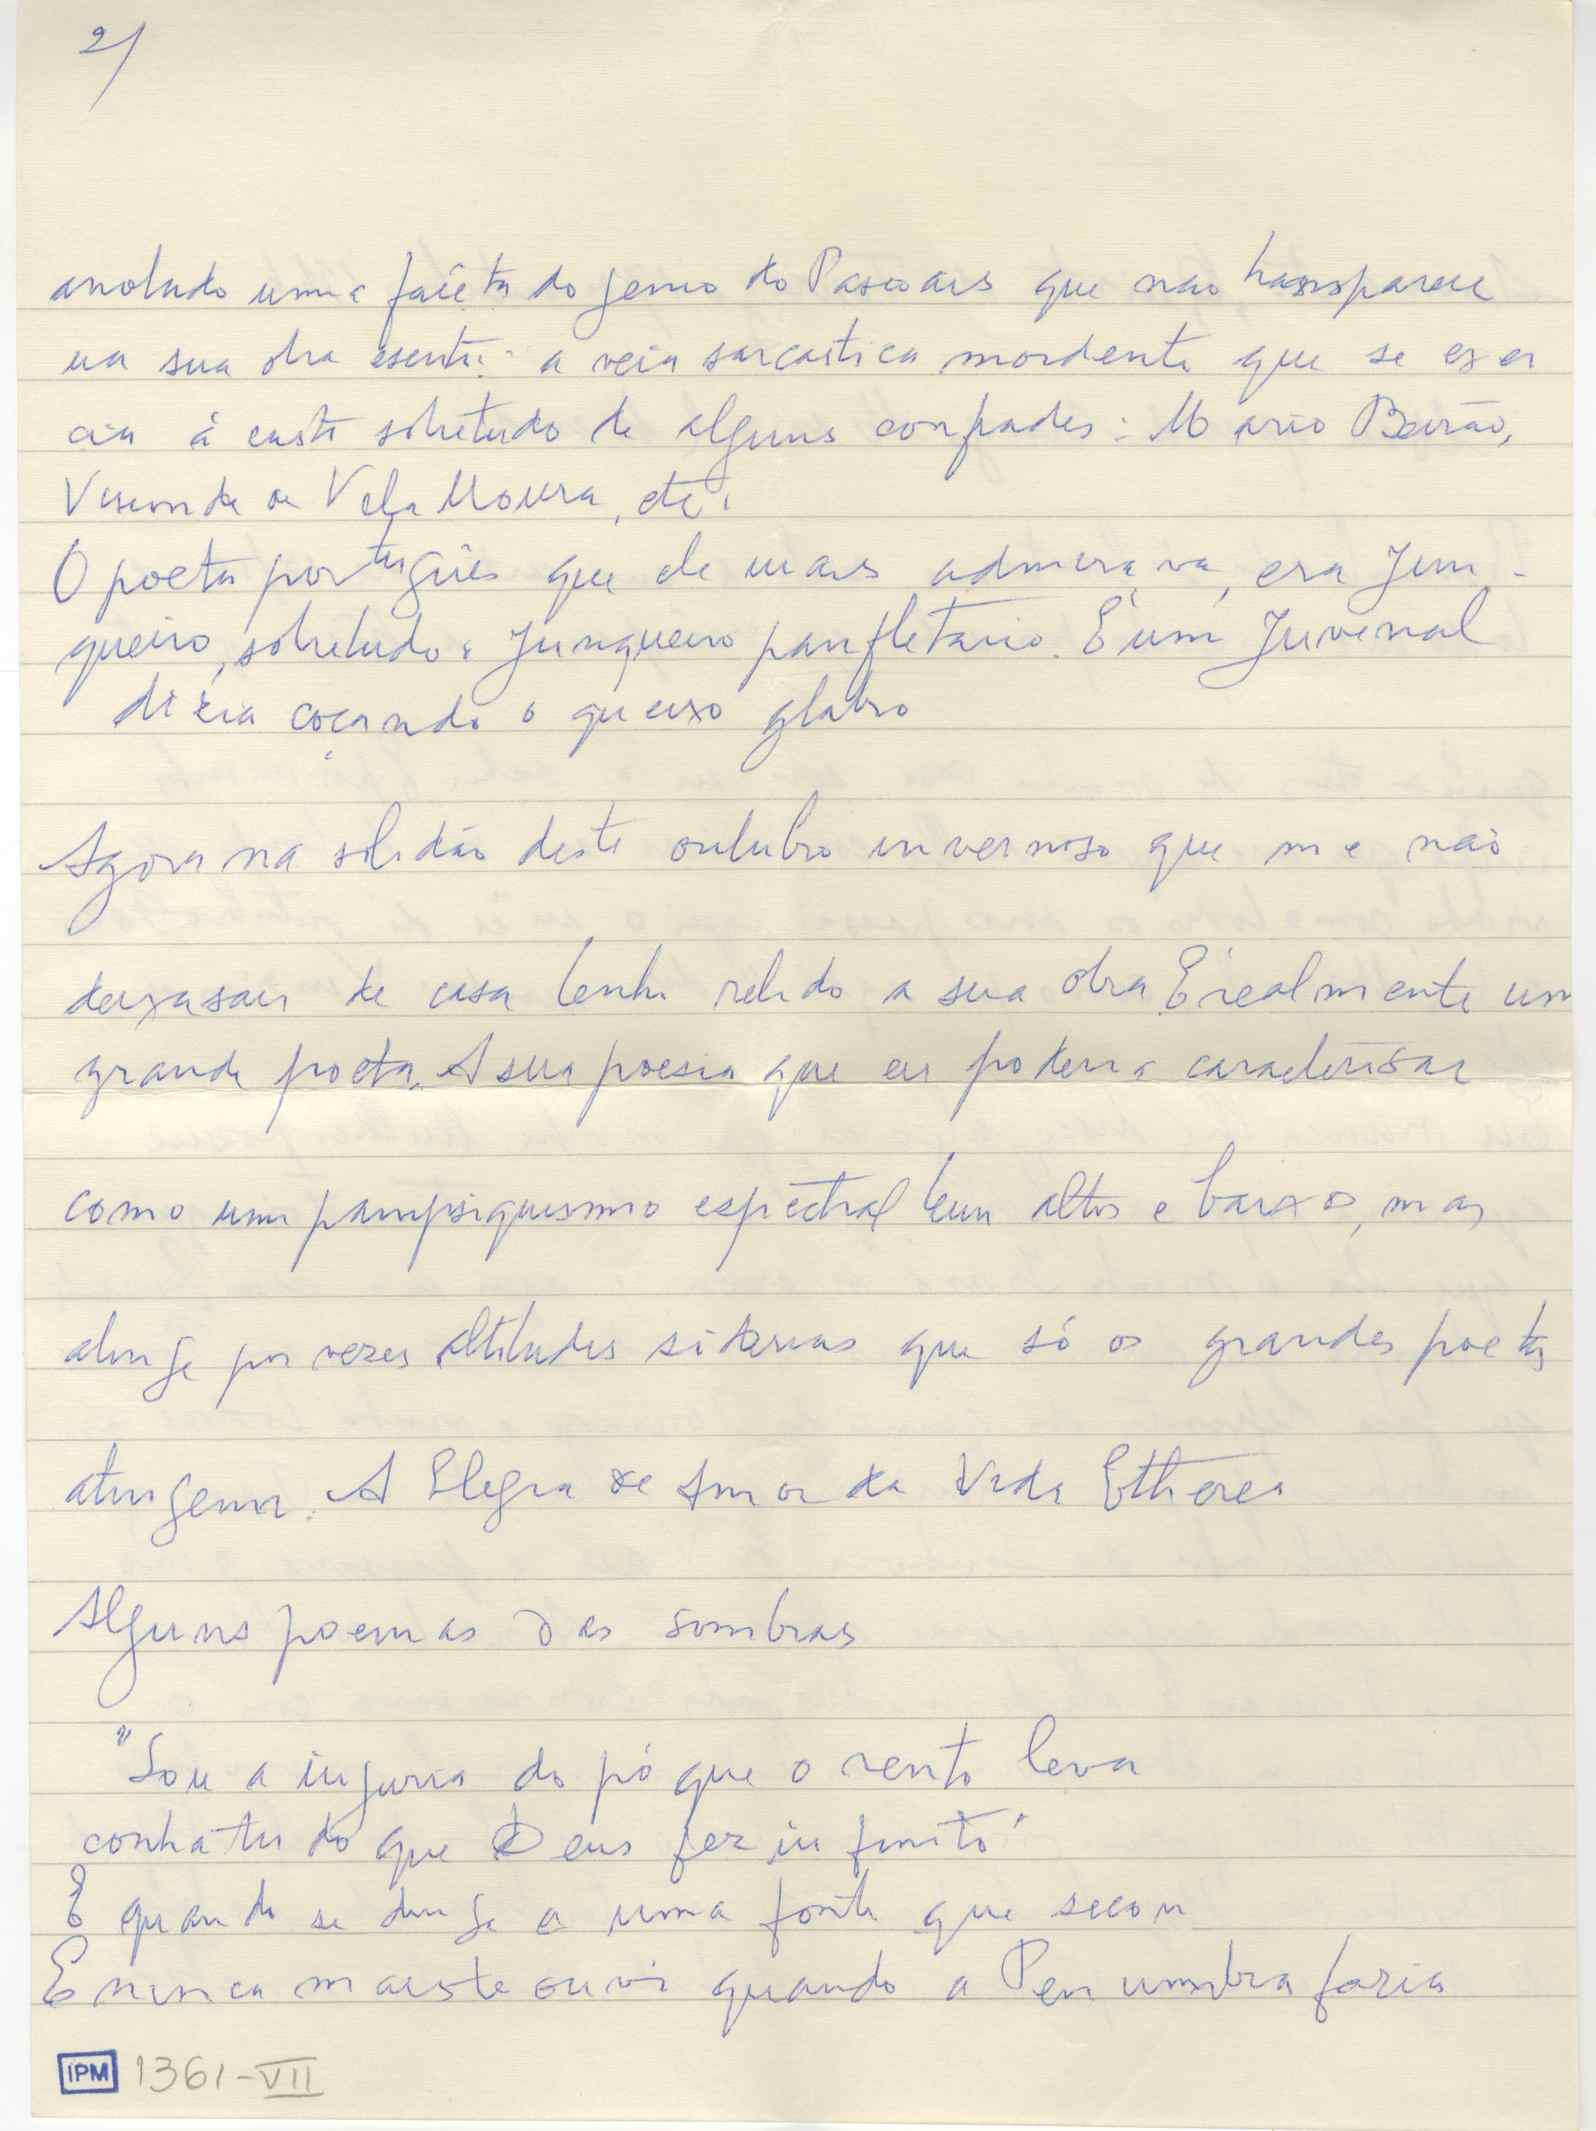 2/
anotado uma faceta do genio do Pascoais que nao transparece
na sua obra escrita: a veia sarcastica mordente que se exer
cia á custa sobretudo de alguns confrades: Mario Beirão,
Visconde de Vila Moura, etc.
O poeta português que ele mais admirava, era Jun-
queiro, sobretudo o Junqueiro panfletario. É um Juvenal
dizia coçando o queixo glabro
Agora na solidão deste outubro invernoso que me não
deixa sair de casa tenho relido a sua obra. É realmente um
grande poeta. A sua poesia que eu poderia caracterisar
como um pampsiquismo espectral tem altos e baixos, mas
atinge por vezes altitudes siderias que só os grandes poetas
atingem. A Elegia de Amor da Vida Etherea
Alguns poemas das sombras
"Sou a injuria do pó que o vento leva
contra tudo que Deus fez infinito"
E quando se dirige a uma fonte que secou
E nunca mais te ouvi quando a Penumbra fazia
IPM 1361-VII